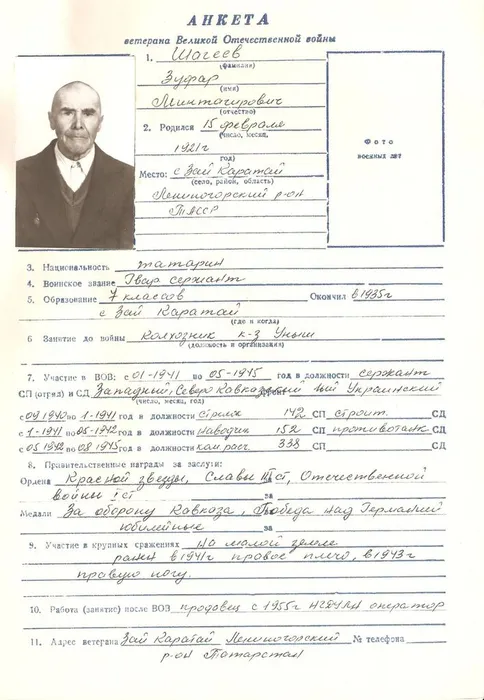 АНКЕТА
ветерана Великой Отечественной войны
1. Шагеев
(фамилия)
Зуфар
(имя)
Минтагирович
(отчество)
2. Родился 15 февраля
(число, месяц,
1921г
год)
Место: с Зай Каратай
(село, район, область)
Лениногорский р-он
ТАССР
Фото
военных лет
3. Национальность татарин
4. Воинское звание Гвар. сержант
5. Образование 7 классов Окончил в 1935г
с Зай Каратай
(где и когда)
6 Занятие до войны Колхозник к-з Уныш
(должность и организация)
7. Участие в ВОВ: с 01-1941 по 05-1945 год в должности сержант
СП (отряд) в СД Западный, Северо Кавказский Украинский
(число, месяц, год)
с 09 1940 по 1-1941 год в должности стрелок 142 СП строит. СД
с 1-1941 по 05-1942 год в должности наводчик 152 СП противотанк СД
с 05 1942 по 08 1945 год в должности ком. расч. 338 СП СД
8. Правительственные награды за заслуги:
Ордена Красной звезды, Славы III ст, Отечественной
войны I ст за
Медали За оборону Кавказа, Победа над Германией
юбилейные за
9. Участие в крупных сражениях На малой земле
ранен в 1941г правое плечо, в 1943г
правую ногу.
10. Работа (занятие) после ВОВ продавец с 1955г НГДУ оператор
11. Адрес ветерана Зай Каратай Лениногорский № телефона
р-он Татарстан